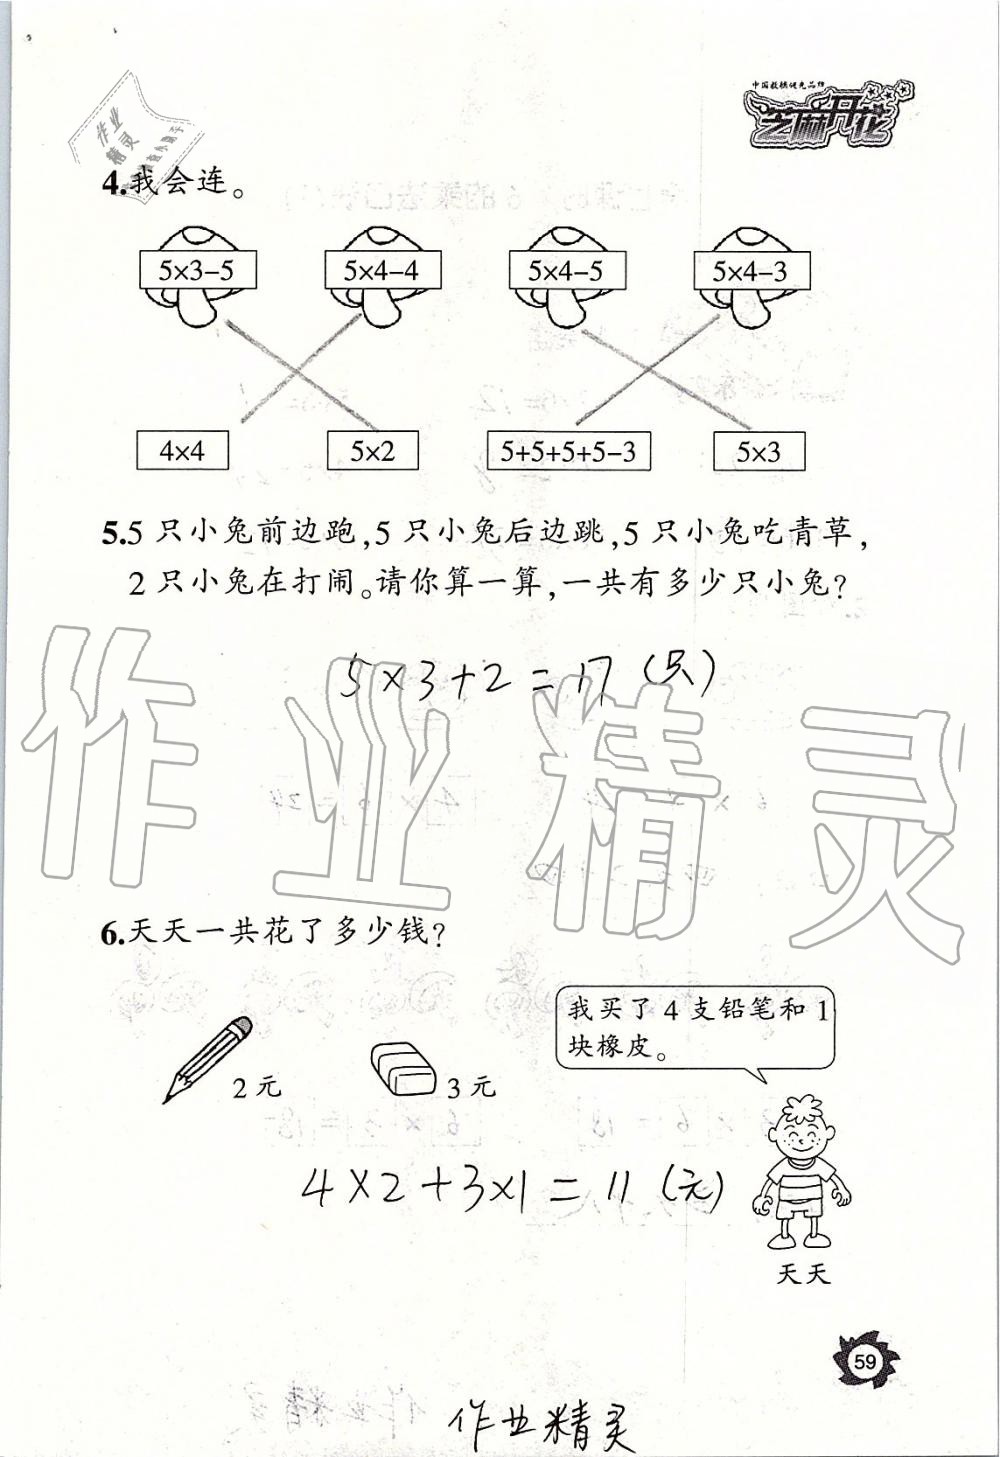 中国教辅领先品牌
芝麻开花
作业
精灵
4.我会连。
5×3-5 5×4-4 5×4-5 5×4-3
4×4 5×2 5+5+5+5-3 5×3
5.5只小兔前边跑,5只小兔后边跳,5只小兔吃青草,
2只小兔在打闹。请你算一算,一共有多少只小兔?
5×3+2=17(只)
作业精灵
6.天天一共花了多少钱?
我买了4支铅笔和1
块橡皮。
2元 3元
4×2+3×1=11(元)
天天
59
作业精灵